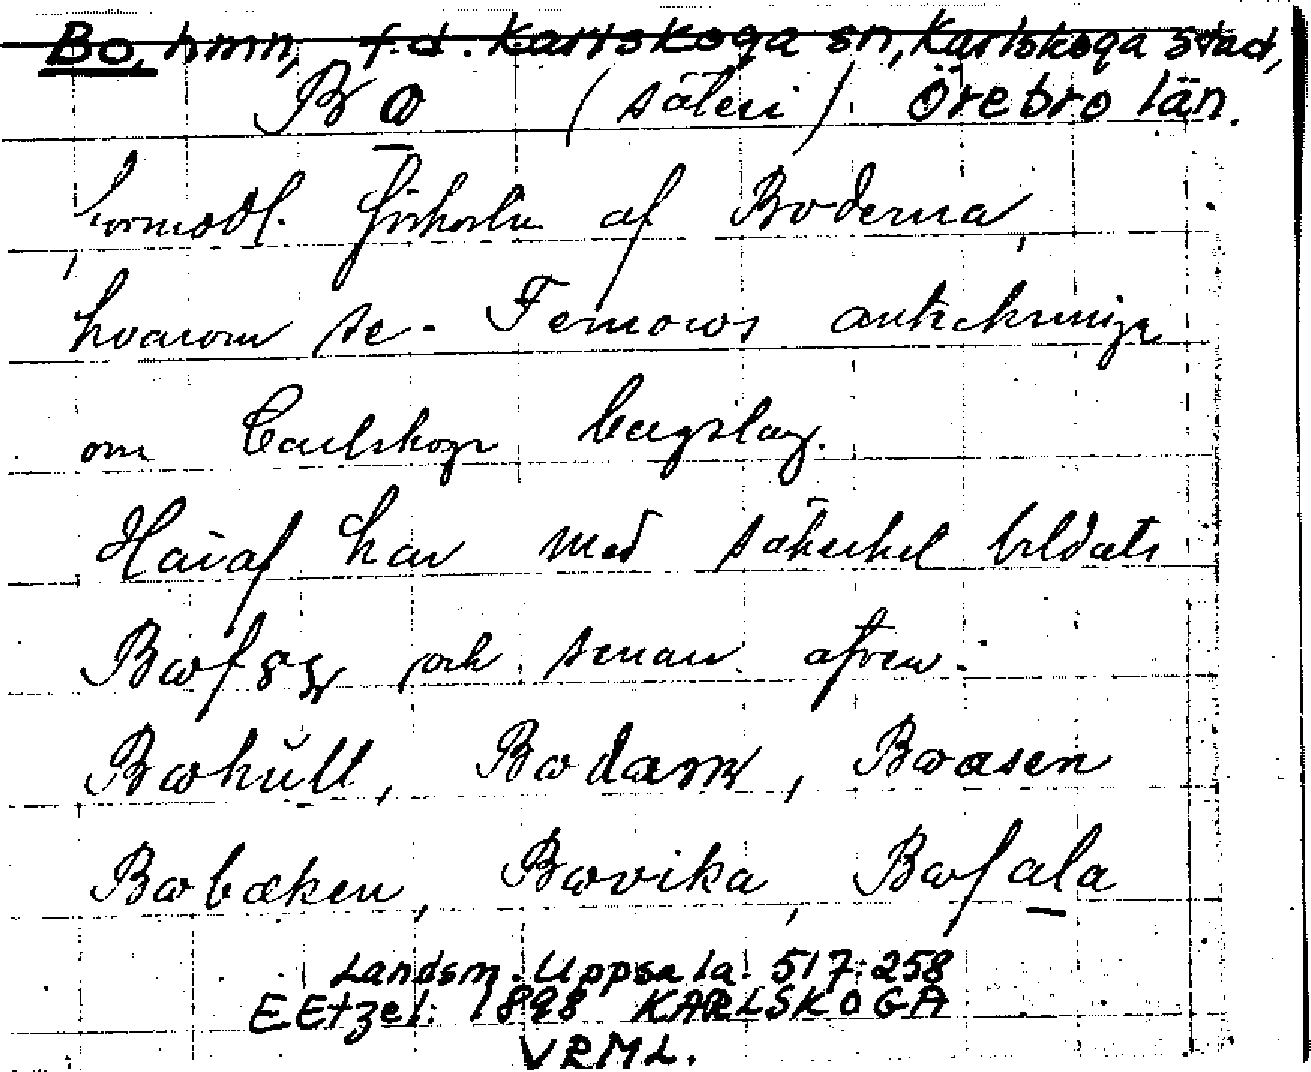 Bo, hmn, f.d. Karlskoga sn, Karlskoga stad,
Bo (säteri) Örebro län.
förmodl. förkortn af Boderna,
hvarom se. Fernows anteckningar
om Carlskoga bergslag.
Häraf har med säkerhet bildats
och senare äfven
Bohult, Boåsen
Bobäcken, Bovika, Bofala
Landsm. Uppsala. 517:258
E Etzel. 1898 KARLSKOGA
VRML.